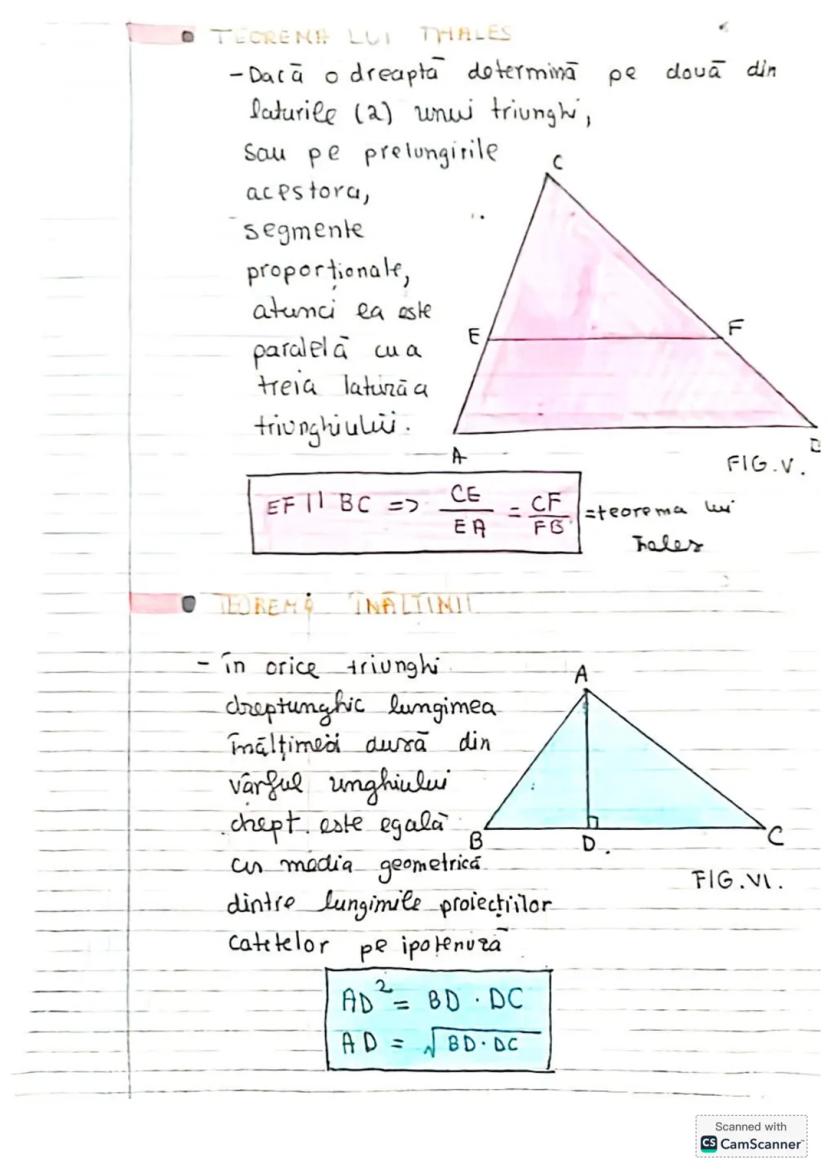 TEOREMA LUI THALES
- Dacă o dreaptă determină pe două din
laturile (2) unui triunghi,
sau pe prelungirile
acestora,
segmente
proporționale,
atunci ea este
paralelă cu a
treia latură a
triunghiului.
C
E
F
A
B
FIG.V.
EF || BC => CE/EA = CF/FB = teorema lui
Thales
TEOREMA ÎNĂLȚIMII
- în orice triunghi
dreptunghic lungimea
înălțimei dusă din
vârful unghiului
drept. este egală
cu media geometrică
dintre lungimile proiecțiilor
catetelor pe ipotenuză
A
B
D.
C
FIG.VI.
AD² = BD · DC
AD = √BD·DC
Scanned with
CS CamScanner